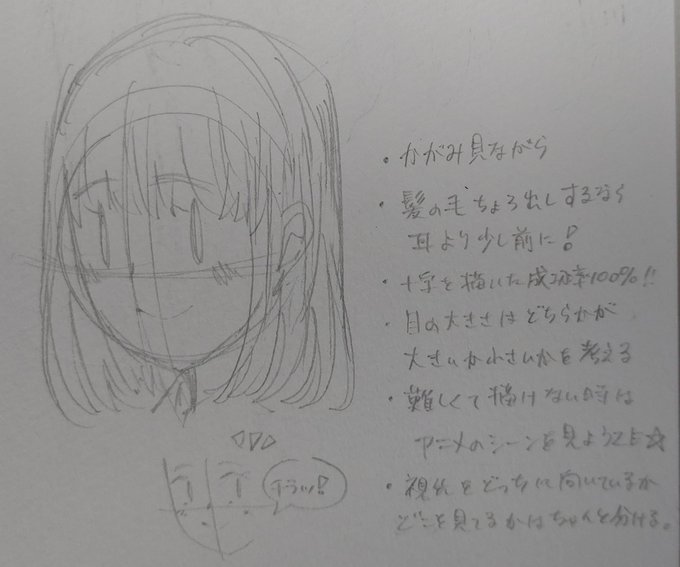 ・かがみ見ながら
・髪の毛ちょろ出しするなら
耳より少し前に!
・十字を描いた成功率100%!!
・目の大きさはどちらかが
大きいか小さいかを考える
・難しくて描けない時は
アニメのシーンを見ようZE☆
・視線をどっちに向いているか
どこを見てるかはちゃんと分ける。
チラッ!